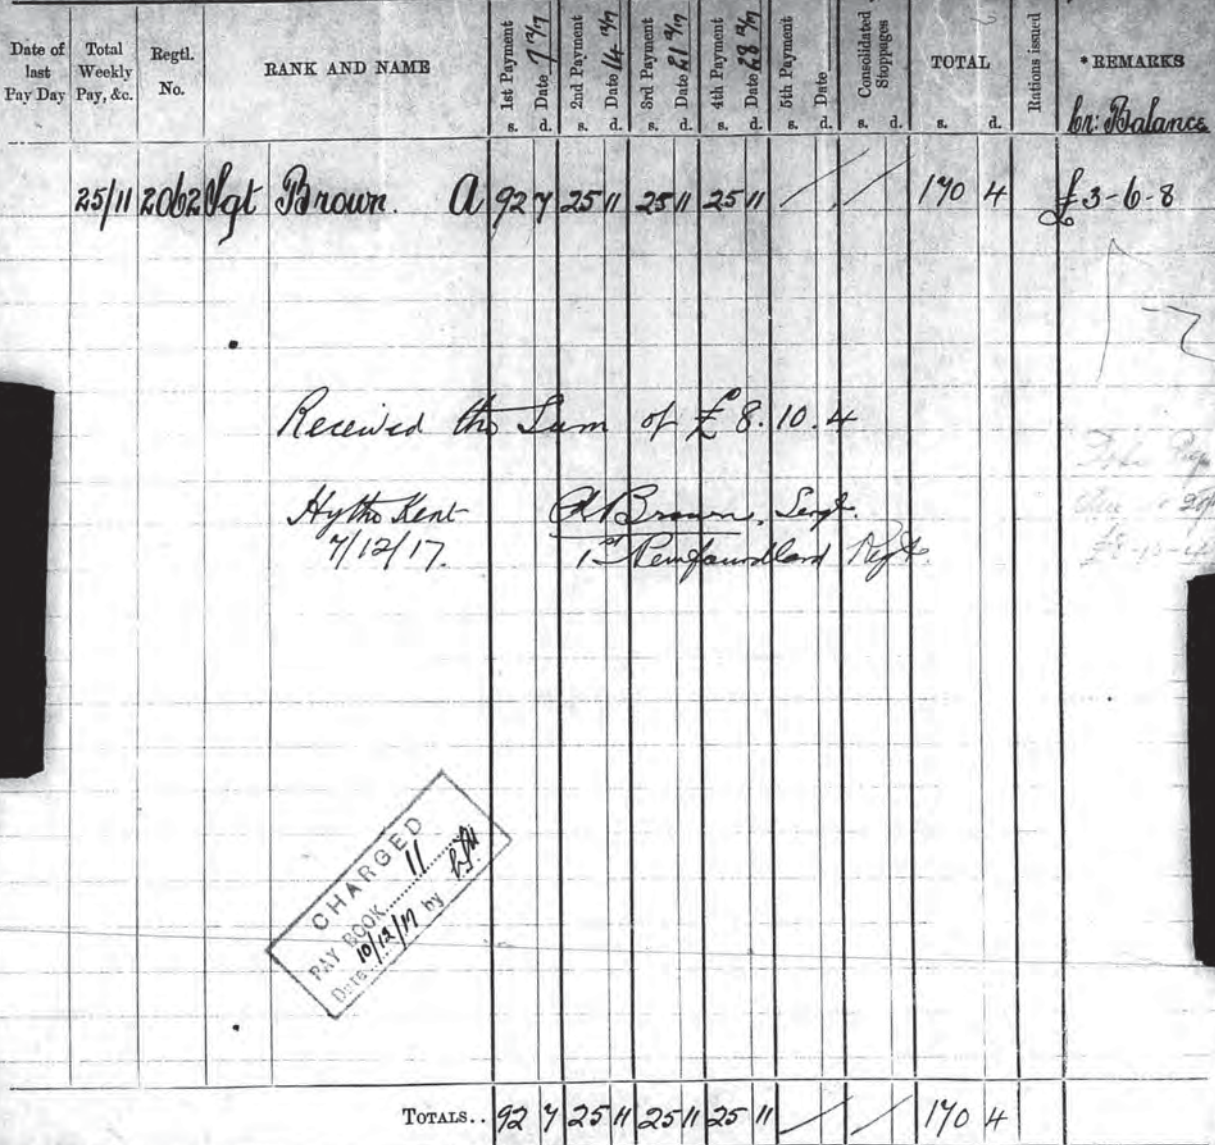 Date of last Pay Day | Total Weekly Pay, &c. | Regtl. No. | RANK AND NAME | 1st Payment Date 7 12/17 s. d. | 2nd Payment Date 14 12/17 s. d. | 3rd Payment Date 21 12/17 s. d. | 4th Payment Date 28 12/17 s. d. | 5th Payment Date s. d. | Consolidated Stoppages s. d. | TOTAL s. d. | Rations issued | * REMARKS Cr: Balance
25/11 2062 Sgt Brown. A 92 7 25 11 25 11 25 11 / / 170 4 £3-6-8
Received the Sum of £8.10.4
Hythe Kent A Brown, Sergt.
7/12/17. 1st Newfoundland Regt.
£8-10-4
CHARGED
PAY BOOK 11
Date 10/12/17 by
TOTALS.. 92 7 25 11 25 11 25 11 / / 170 4